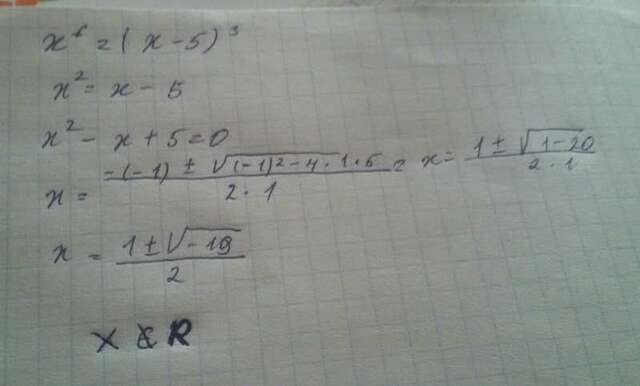 x⁶ = (x - 5)³
x² = x - 5
x² - x + 5 = 0
x = (-(-1) ± √((-1)2 - 4·1·5)) / (2·1) = x = (1 ± √(1-20)) / (2·1)
x = (1 ± √(-19)) / 2
X ∉ R